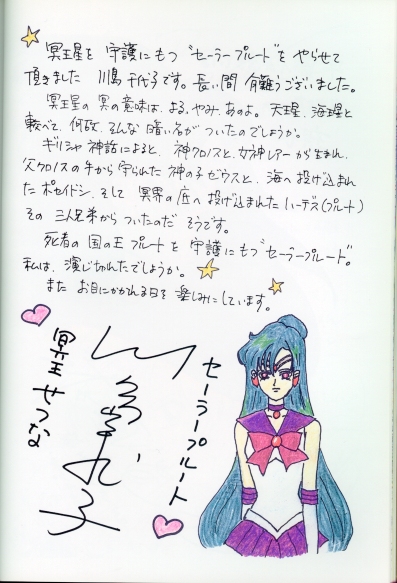 冥王星を 守護にもつ “セーラープルート” を やらせて
頂きました 川島 千代子です。長い間 有難うございました。
冥王星の 冥の意味は、よる、やみ、あのよ。天王星、海王星と
較べて、何故、そんな 暗い名が ついたのでしょうか。
ギリシャ 神話によると、神クロノスと、女神レアーから生まれ、
父クロノスの手から 守られた 神の子 ゼウスと、海へ 投げ込まれ
た ポセイドン、そして 冥界の底へ 投げ込まれた ハーデス(プルート)
その 三人兄弟から ついたのだ そうです。
死者の 国の王 プルート を 守護にもつ “セーラープルート”。
私は、演じ切れたでしょうか。
また お目にかかれる日を 楽しみにしています。
セーラープルート
川島千代子
冥王 せつな